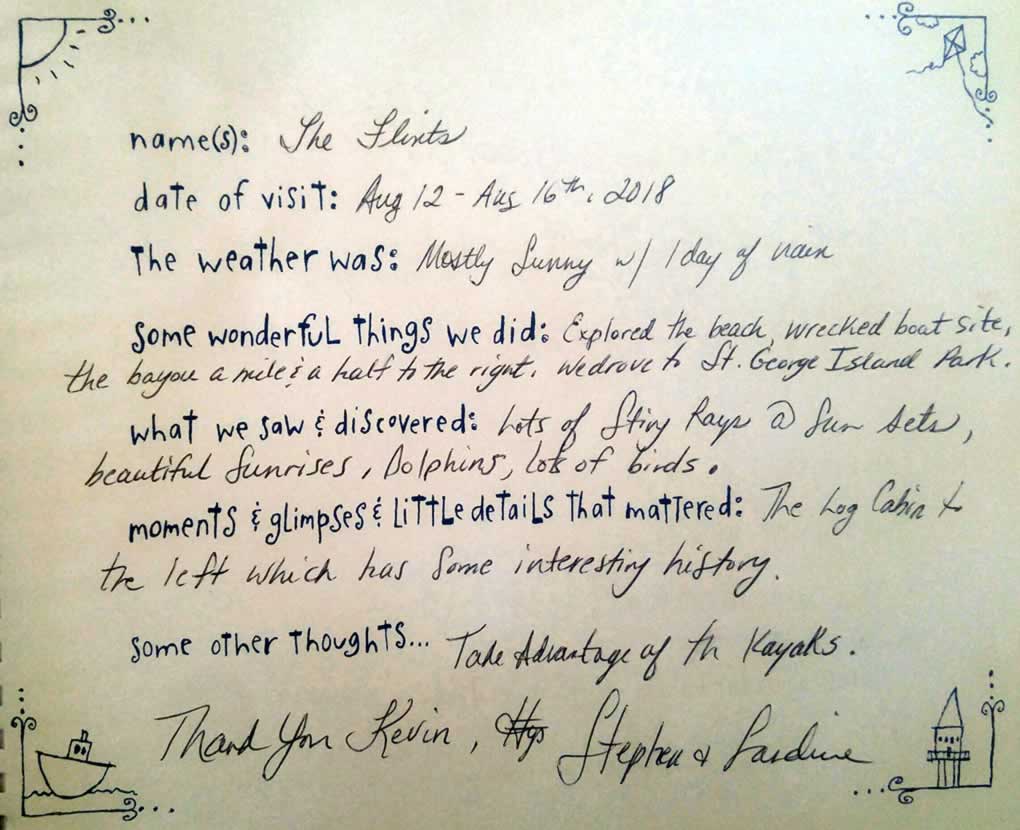 name(s): The Flints
date of visit: Aug 12 - Aug 16th, 2018
The weather was: Mostly Sunny w/ 1 day of rain
some wonderful things we did: Explored the beach, wrecked boat site,
the bayou a mile & a half to the right. We drove to St. George Island Park.
what we saw & discovered: Lots of Sting Rays @ Sun Sets,
beautiful Sunrises, Dolphins, lots of birds.
moments & glimpses & little details that mattered: The Log Cabin to
the left which has Some interesting history.
some other thoughts... Take Advantage of th Kayaks.
Thank You Kevin, Stephen &